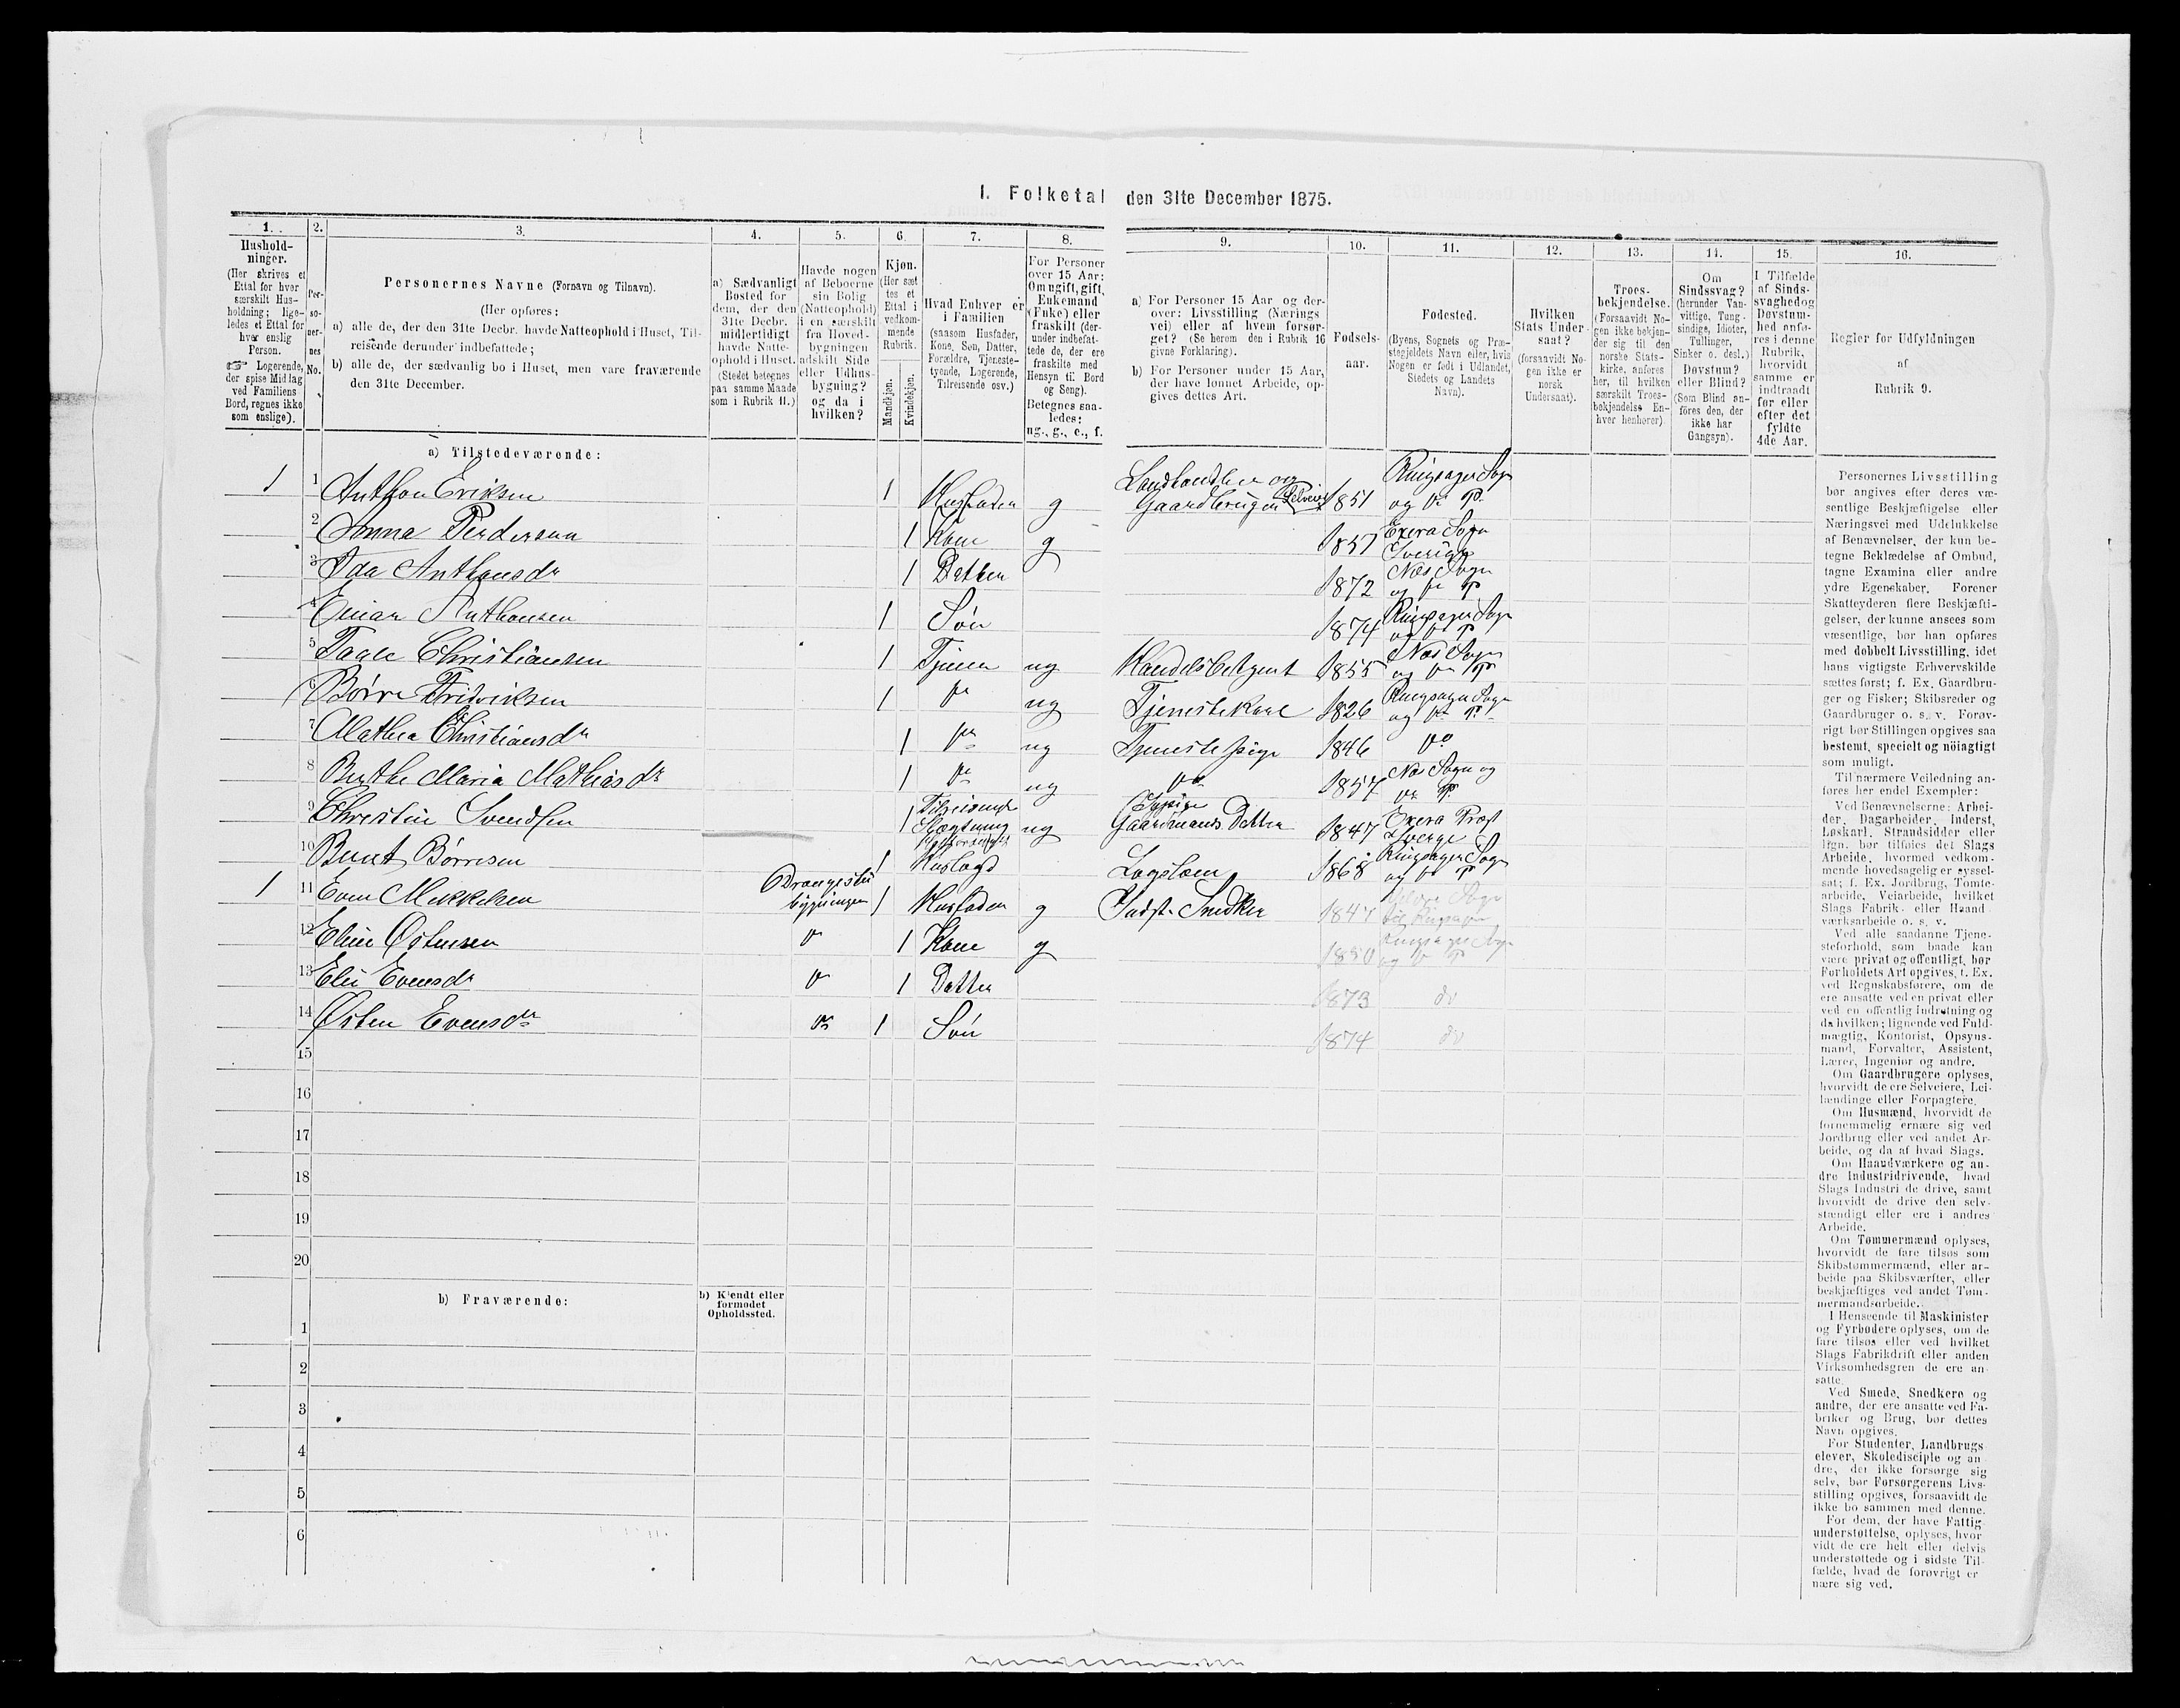 I. Folketal den 31te December 1875.
1. 2. 3. 4. 5. 6. 7. 8. 9. 10. 11. 12. 13. 14. 15. 16.
Hushold-
ninger.
(Her skrives et
Ettal for hver
særskilt Hus-
holdning; lige-
ledes et Ettal for
hver enslig
Person.
☞ Logerende,
der spise Middag
ved Familiens
Bord, regnes ikke
som enslige).
Per-
so-
ner-
nes
No.
Personernes Navne (Fornavn og Tilnavn).
(Her opføres:
a) alle de, der den 31te Decbr. havde Natteophold i Huset, Til-
reisende derunder indbefattede;
b) alle de, der sædvanlig bo i Huset, men vare fraværende
den 31te December.
a) Sædvanligt
Bosted for
dem, der den
31te Decbr.
midlertidigt
havde Natte-
ophold i Huset.
(Stedet betegnes
paa samme Maade
som i Rubrik 11.)
Havde nogen
af Beboerne
sin Bolig
(Natteophold)
i en særskilt
fra Hoved-
bygningen
adskilt Side
eller Udhus-
bygning?
og da i
hvilken?
Kjøn.
(Her sæt
tes et
Ettal i
vedkom-
mende
Rubrik.
Mandkjøn.
Kvindekjøn.
Hvad Enhver er
i Familien
(saasom Husfader,
Kone, Søn, Datter,
Forældre, Tjeneste-
tyende, Logerende,
Tilreisende osv.)
For Personer
over 15 Aar:
Om ugift, gift,
Enkemand
(Enke) eller
fraskilt (der-
under indbefat-
tede de, der ere
fraskilte med
Hensyn til Bord
og Seng).
Betegnes saa-
ledes:
ug., g., e., f.
a) For Personer 15 Aar og der-
over: Livsstilling (Nærings
vei) eller af hvem forsør-
get? (Se herom den i Rubrik 16
givne Forklaring).
b) For Personer under 15 Aar,
der have lønnet Arbeide, op-
gives dettes Art.
Fødsels-
aar.
Fødested.
(Byens, Sognets og Præ-
stegjeldets Navn eller, hvis
Nogen er født i Udlandet,
Stedets og Landets
Navn).
Hvilken
Stats Under-
saat?
(forsaavidt No-
gen ikke er
norsk
Undersaat).
Troes-
bekjendelse.
(Forsaavidt No-
gen ikke bekjen-
der sig til den
norske Stats-
kirke, anføres
her, til hvilken
særskilt Troes-
bekjendelse En-
hver henhører).
Om
Sindssvag?
(herunder Van-
vittige, Tung-
sindige, Idioter,
Tullinger,
Sinker o. desl.)
Døvstum?
eller Blind?
(Som Blind an-
føres den, der
ikke har
Gangsyn).
I Tilfælde
af Sinds-
svaghedog
Døvstum-
hed anfø-
res i denne
Rubrik,
hvorvidt
samme er
indtraadt
før eller
efter det
fyldte
4de Aar.
Regler for Udfyldningen
af
Rubrik 9.
a) Tilstedeværende:
1 1 Anthon Eriksen 1 Husfader g Landhandler og Gaardbruger Selveier 1851 Ringsager Sogn og do P.
2 Anna Pedersen 1 Kone g 1857 Sogn Sverige
3 Ida Anthonsdr 1 Datter 1872 Næs Sogn og do P
4 Einar Anthonsen 1 Søn 1874 Ringsager Sogn og do P
5 Christiansen 1 Tjener ug Handelsbetjent 1855 Næs Sogn og do P
6 Børre Fredriksen 1 do ug Tjenestekarl 1826 Ringsager Sogn og do P
7 Mathea Christiansdr 1 do ug Tjenestepige 1846 do
8 Berthe Maria Mathiasdr 1 do ug do 1857 Næs Sogn og do P
9 Christine Svendsen 1 Tilreisende ug Gaardmands Datter 1847 Sverge
10 Bernt Børresen 1 Huslogd Lægdslem 1868 Ringsager Sogn og do P
1 11 Even Mikkelsen bygningen 1 Husfader g Indst. Snedker 1847
12 Eline Østensen do 1 Kone g 1850 Ringsager Sogn og do P
13 Eli Evensdr do 1 Datter 1873 do
14 Østen Evensdr do 1 Søn 1874 do
15
16
17
18
19
20
b) Fraværende:
b) Kjendt eller
formodet
Opholdssted.
1
2
3
4
5
6
Personernes Livsstilling
bør angives efter deres væ-
sentlige Beskjæftigelse eller
Næringsvei med Udelukkelse
af Benævnelser, der kun be-
tegne Beklædelse af Ombud,
tagne Examina eller andre
ydre Egenskaber. Forener
Skatteyderen flere Beskjæfti-
gelser, der kunne ansees som
væsentlige, bør han opføres
med dobbelt Livsstilling, idet
hans vigtigste Erhvervskilde
sættes først; f. Ex. Gaardbru-
ger og Fisker; Skibsreder og
Gaardbruger o. s. v. Forøv-
rigt bør Stillingen opgives saa
bestemt, specielt og nöiagtigt
som muligt.
Til nærmere Veiledning an-
føres her endel Exempler:
Ved Benævnelserne: Arbei-
der, Dagarbeider, Inderst,
Løskarl, Strandsidder eller
lign. bør tilføies det Slags
Arbeide, hvormed vedkom-
mende hovedsagelig er syssel-
sat; f. Ex. Jordbrug, Tomte-
arbeide, Veiarbeide, hvilket
Slags Fabrik- eller Haand-
værksarbeide o. s. v.
Ved alle saadanne Tjene-
steforhold, som baade kan
være privat og offentligt, bør
Forholdets Art opgives, f. Ex.
ved Regnskabsførere, om de
ere ansatte ved en privat eller
ved en offentlig Indretning og
da hvilken; lignende ved Fuld-
mægtig, Kontorist, Opsyns-
mand, Forvalter, Assistent,
Lærer, Ingeniør og andre.
Om Gaardbrugere oplyses,
hvorvidt de ere Selveiere, Lei-
lændinge eller Forpagtere.
Om Husmænd, hvorvidt de
fornemmelig ernære sig ved
Jordbrug eller ved andet Ar-
beide, og da af hvad Slags.
Om Haandværkere og an-
dre Industridrivende, hvad
Slags Industri de drive, samt
hvorvidt de drive den selv-
stændigt eller ere i andres
Arbeide.
Om Tømmermænd oplyses,
hvorvidt de fare tilsøs som
Skibstømmermænd, eller ar-
beide paa Skibsværfter, eller
beskjæftiges ved andet Tøm-
mermandsarbeide.
I Henseende til Maskinister
og Fyrbødere oplyses, om de
fare tilsøs eller ved hvilket
Slags Fabrikdrift eller anden
Virksomhedsgren de ere an-
satte.
Ved Smede, Snedkere og
andre, der ere ansatte ved Fa-
briker og Brug, bør dettes
Navn opgives.
For Studenter, Landbrugs-
elever, Skoledisciple og an-
dre, der ikke forsørge sig
selv, bør Forsørgerens Livs-
stilling opgives, forsaavidt de
ikke bo sammen med denne.
For dem, der have Fattig-
understøttelse, oplyses, hvor-
vidt de ere helt eller delvis
understøttede og i sidste Til-
fælde, hvad de forøvrigt er-
nære sig ved.